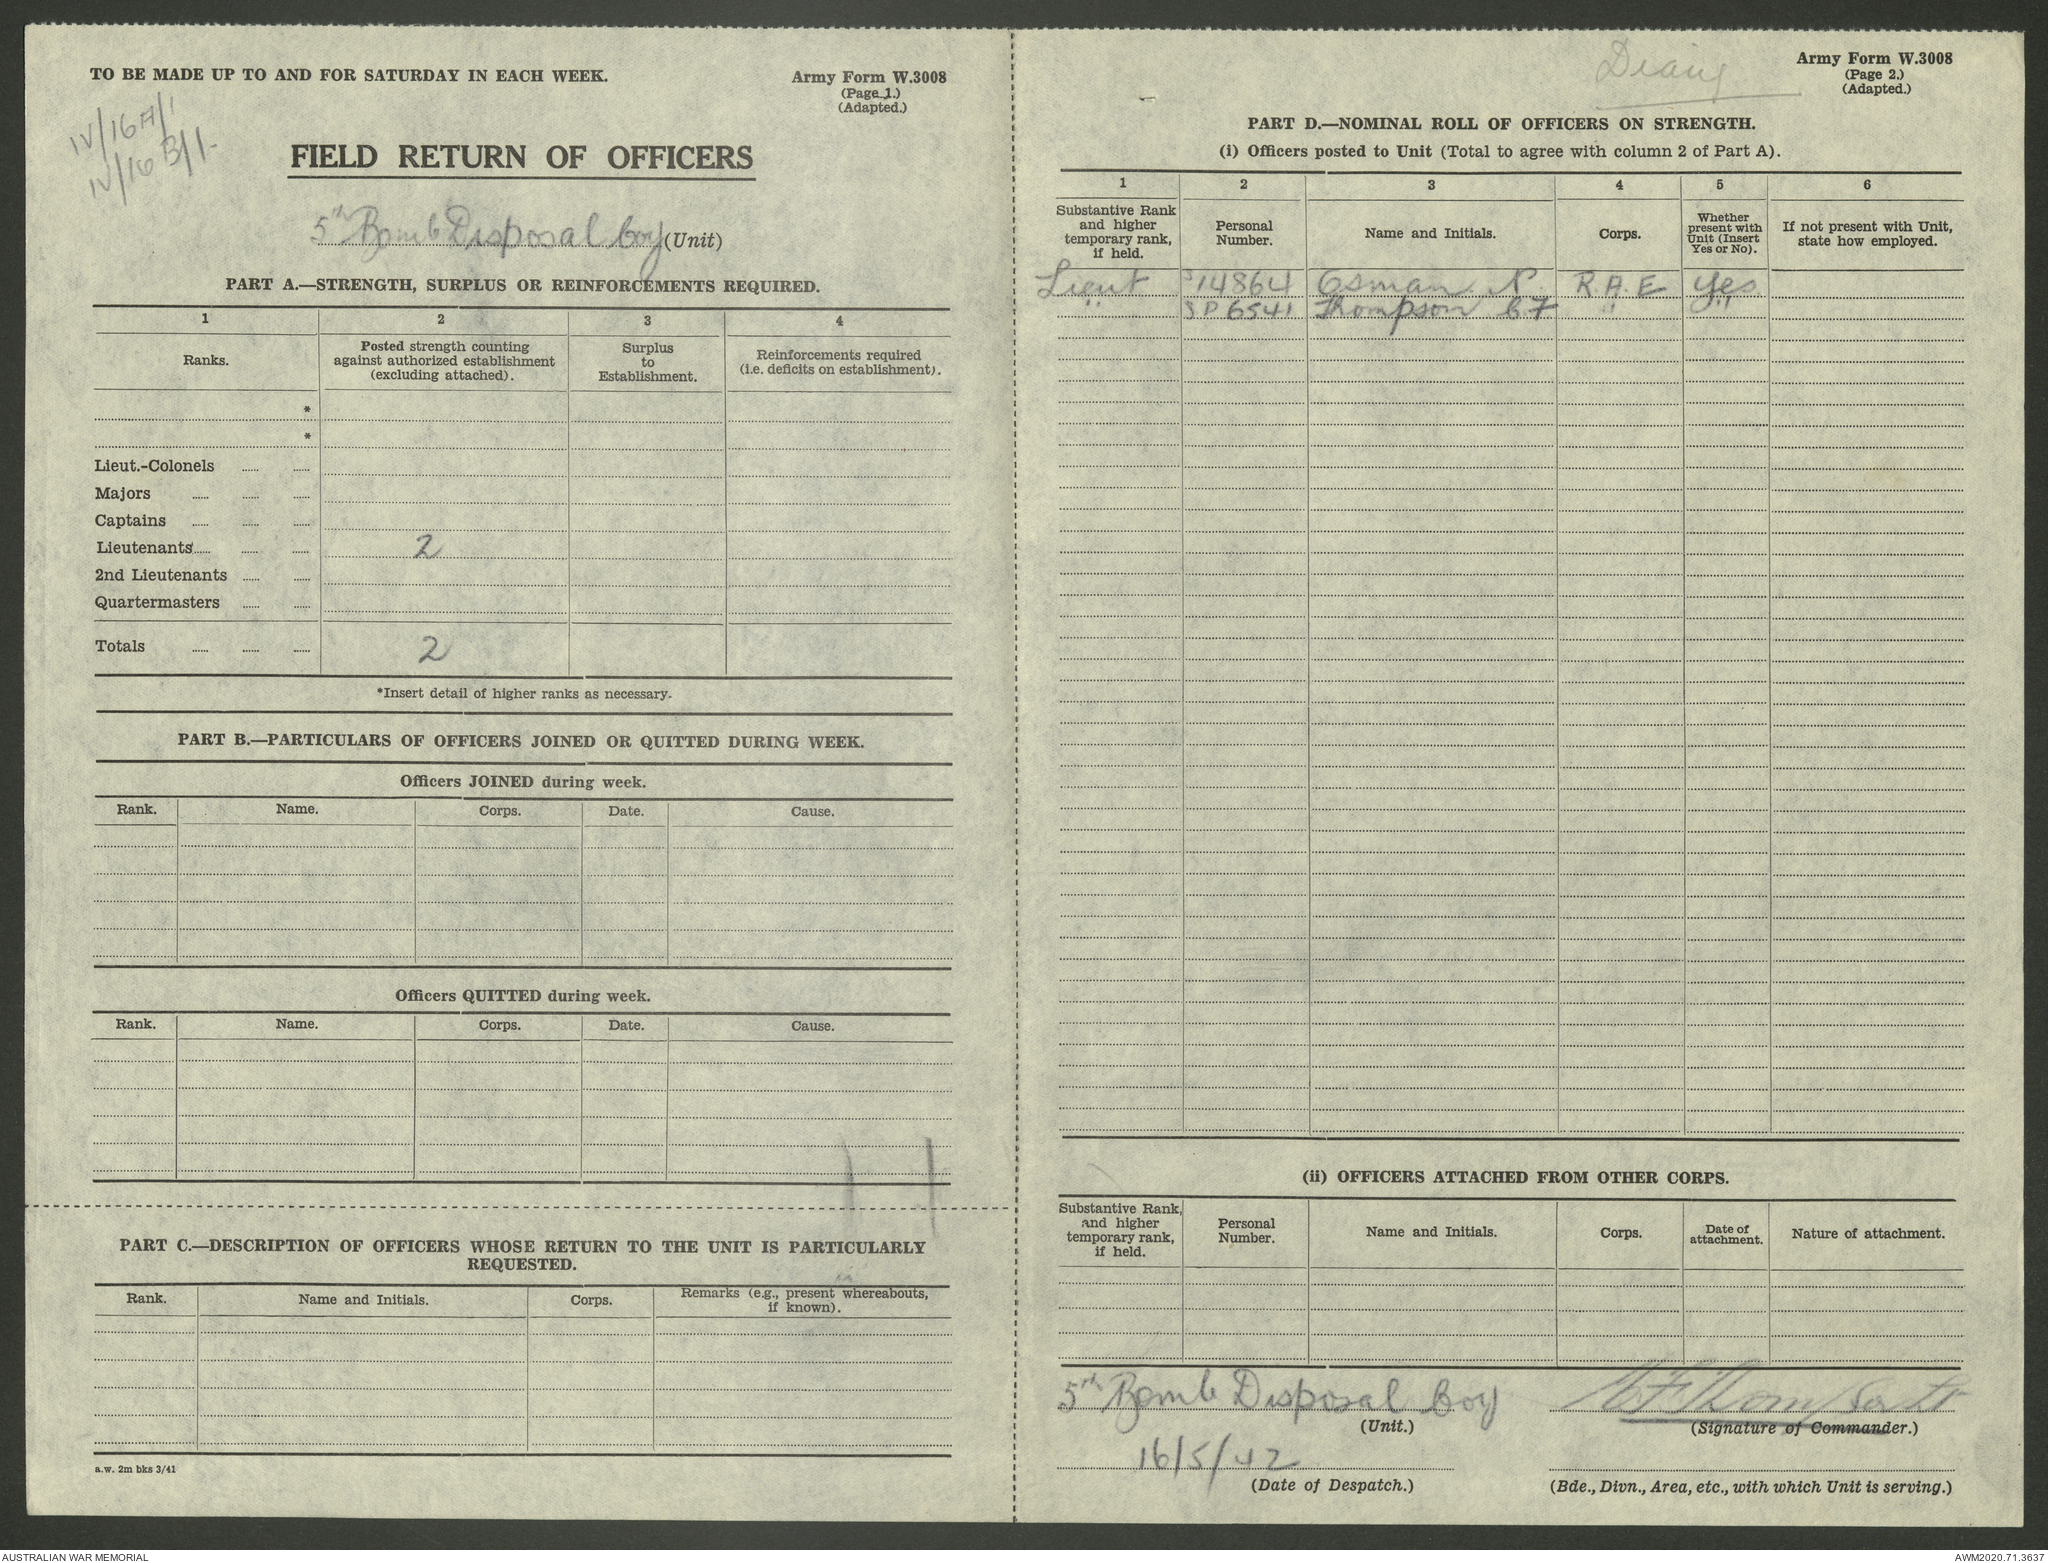 TO BE MADE UP TO AND FOR SATURDAY IN EACH WEEK.
Army Form W.3008
(Page 1.)
(Adapted.)
IV/16A/1
IV/16B/1-
FIELD RETURN OF OFFICERS
5th Bomb Disposal Coy (Unit)
PART A.—STRENGTH, SURPLUS OR REINFORCEMENTS REQUIRED.
1 2 3 4
Ranks.
Posted strength counting
against authorized establishment
(excluding attached).
Surplus
to
Establishment.
Reinforcements required
(i.e. deficits on establishment).
*
*
Lieut.-Colonels ...... ......
Majors ...... ...... ......
Captains ...... ...... ......
Lieutenants ...... ...... ...... 2
2nd Lieutenants ...... ......
Quartermasters ...... ......
Totals ...... ...... ...... 2
*Insert detail of higher ranks as necessary.
PART B.—PARTICULARS OF OFFICERS JOINED OR QUITTED DURING WEEK.
Officers JOINED during week.
Rank. Name. Corps. Date. Cause.
Officers QUITTED during week.
Rank. Name. Corps. Date. Cause.
PART C.—DESCRIPTION OF OFFICERS WHOSE RETURN TO THE UNIT IS PARTICULARLY
REQUESTED.
Rank. Name and Initials. Corps.
Remarks (e.g., present whereabouts,
if known).
a.w. 2m bks 3/41
Army Form W.3008
(Page 2.)
(Adapted.)
PART D.—NOMINAL ROLL OF OFFICERS ON STRENGTH.
(i) Officers posted to Unit (Total to agree with column 2 of Part A).
1 2 3 4 5 6
Substantive Rank
and higher
temporary rank,
if held.
Personal
Number.
Name and Initials.
Corps.
Whether
present with
Unit (Insert
Yes or No).
If not present with Unit,
state how employed.
Lieut S14864 Osman N. R.A.E yes
" SP6541 Thompson C F " "
(ii) OFFICERS ATTACHED FROM OTHER CORPS.
Substantive Rank,
and higher
temporary rank,
if held.
Personal
Number.
Name and Initials.
Corps.
Date of
attachment.
Nature of attachment.
5th Bomb Disposal Coy
(Unit.)
CF Thompson Lt
(Signature of Commander.)
16/5/42
(Date of Despatch.)
(Bde., Divn., Area, etc., with which Unit is serving.)
AUSTRALIAN WAR MEMORIAL
AWM2020.71.3637